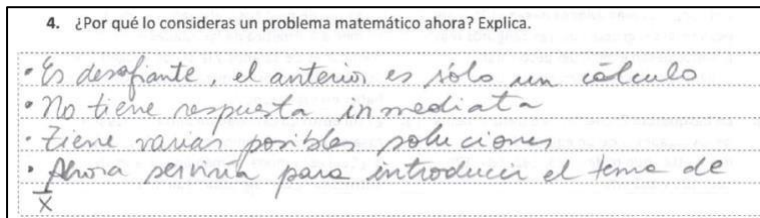 4. ¿Por qué lo consideras un problema matemático ahora? Explica.
• Es desafiante, el anterior es sólo un cálculo
• no tiene respuesta inmediata
• tiene varias posibles soluciones
• Ahora serviría para introducir el tema de
x̄